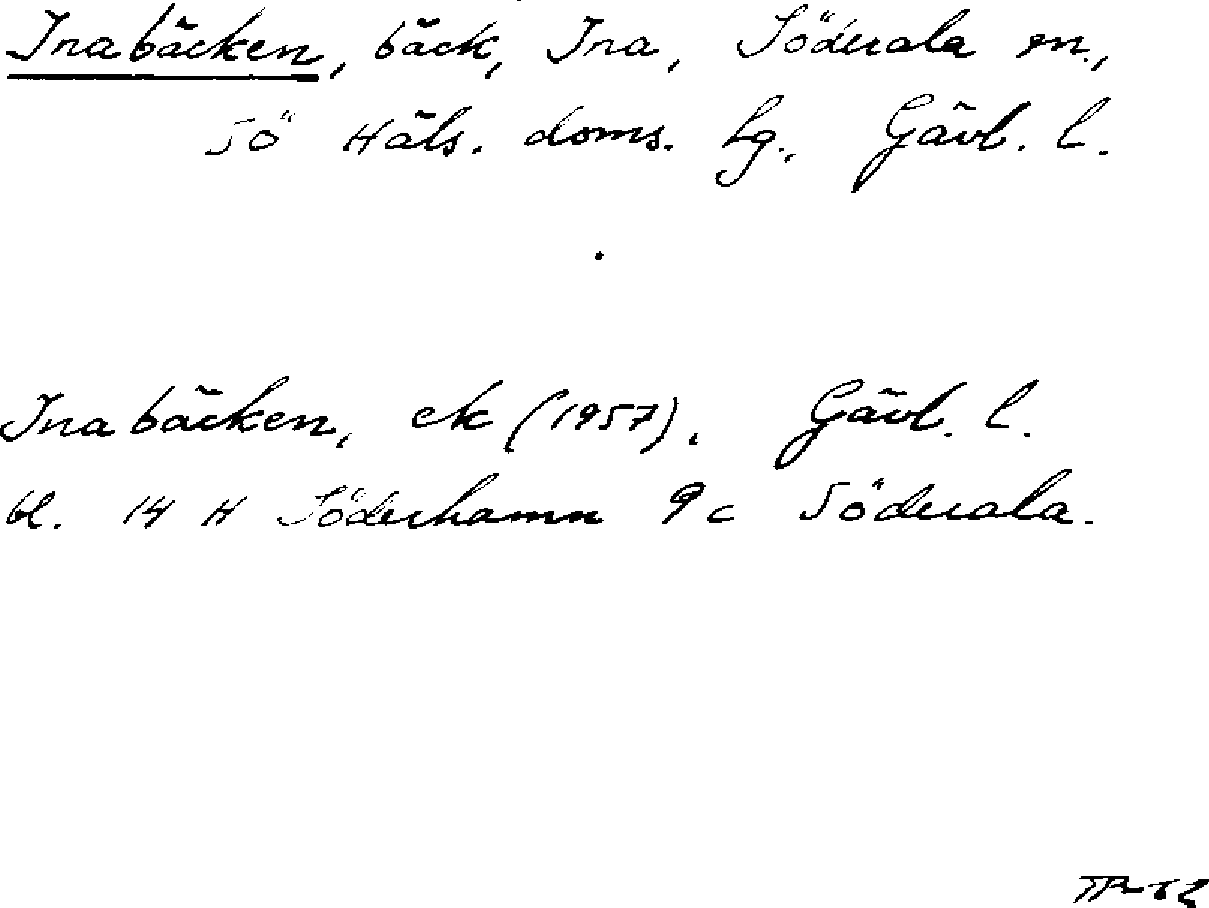 Inabäcken, bäck, Ina, Söderala sn.,
Sö Häls. doms. lg., Gävl. l.
Inabäcken, ek (1957). Gävl. l.
bl. 14 H Söderhamn 9 c Söderala.